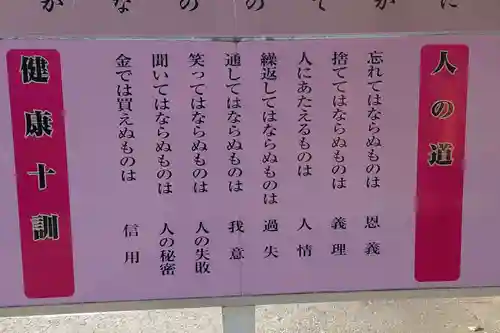 人の道
忘れてはならぬものは 恩義
捨ててはならぬものは 義理
人にあたえるものは 人情
繰返してはならぬものは 過失
通してはならぬものは 我意
笑ってはならぬものは 人の失敗
聞いてはならぬものは 人の秘密
金では買えぬものは 信用
健康十訓